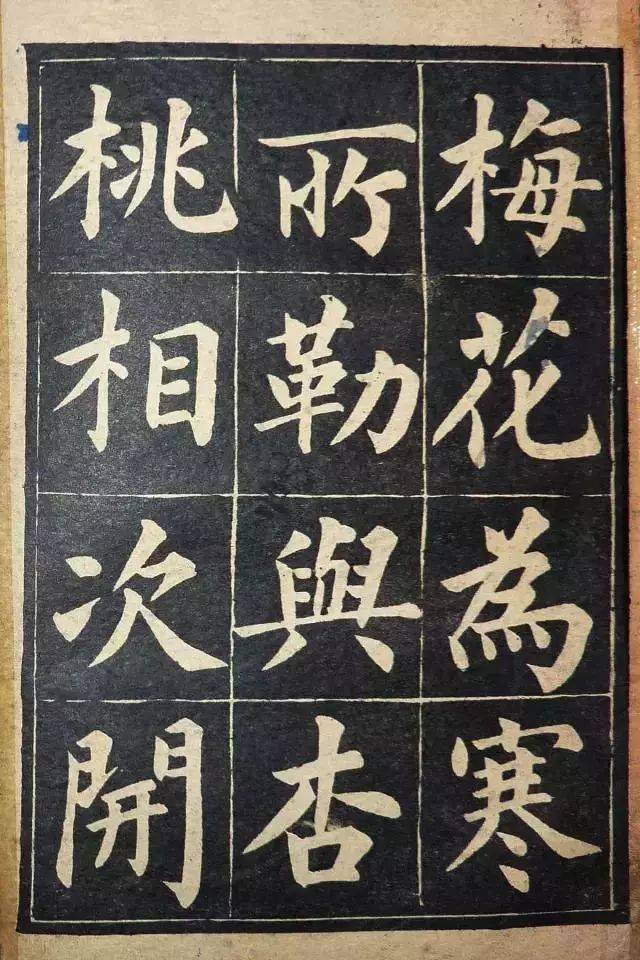 梅花為寒
所勒與杏
桃相次開